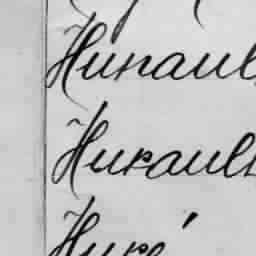 Hunaul
Huraul
Huré